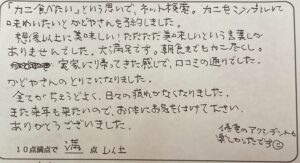 「カニ食べたい」という思いで、ネット検索。カニをシンプルに
味わいたいとかどやさんを予約しました。
想像以上に美味しい!ただただ美味しいという言葉しか
ありませんでした。大満足です。朝食までもカニづくし。
実家に帰ってきた感じで、口コミの通りでした。
かどやさんのとりこになりました。
全てがちょうどよく、日々の疲れがなくなりました。
また来年も来たいので、お体にお気をつけて下さい。
ありがとうございました。
10点満点で 満 点以上
楽しかったです